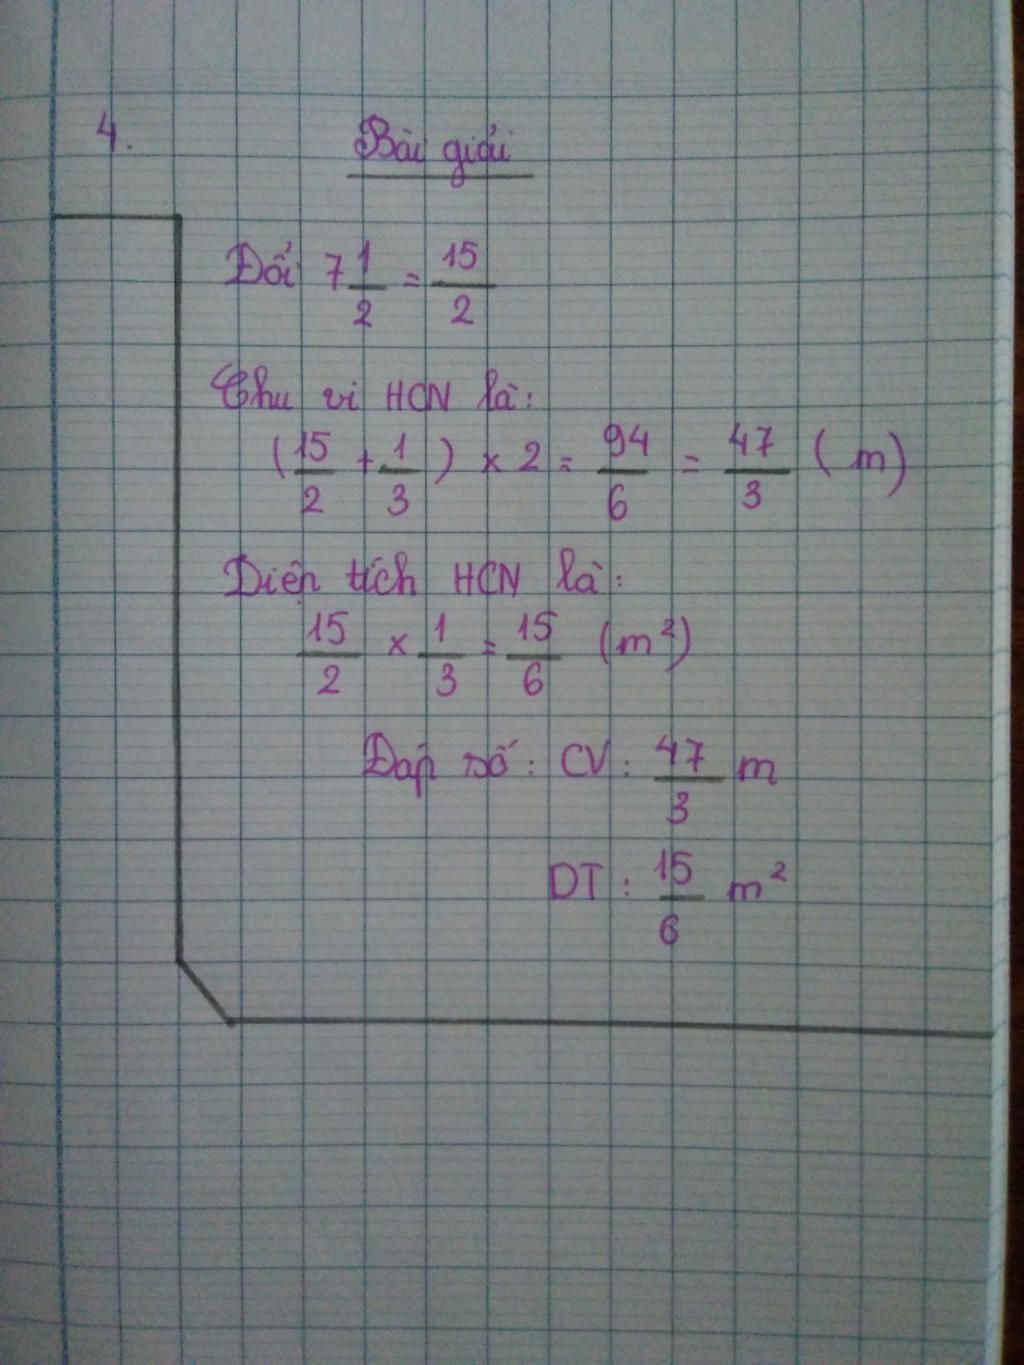 4. Bài giải
Đổi 7 1/2 = 15/2
Chu vi HCN là:
(15/2 + 1/3) × 2 = 94/6 = 47/3 (m)
Diện tích HCN là:
15/2 × 1/3 = 15/6 (m²)
Đáp số: CV: 47/3 m
DT: 15/6 m²